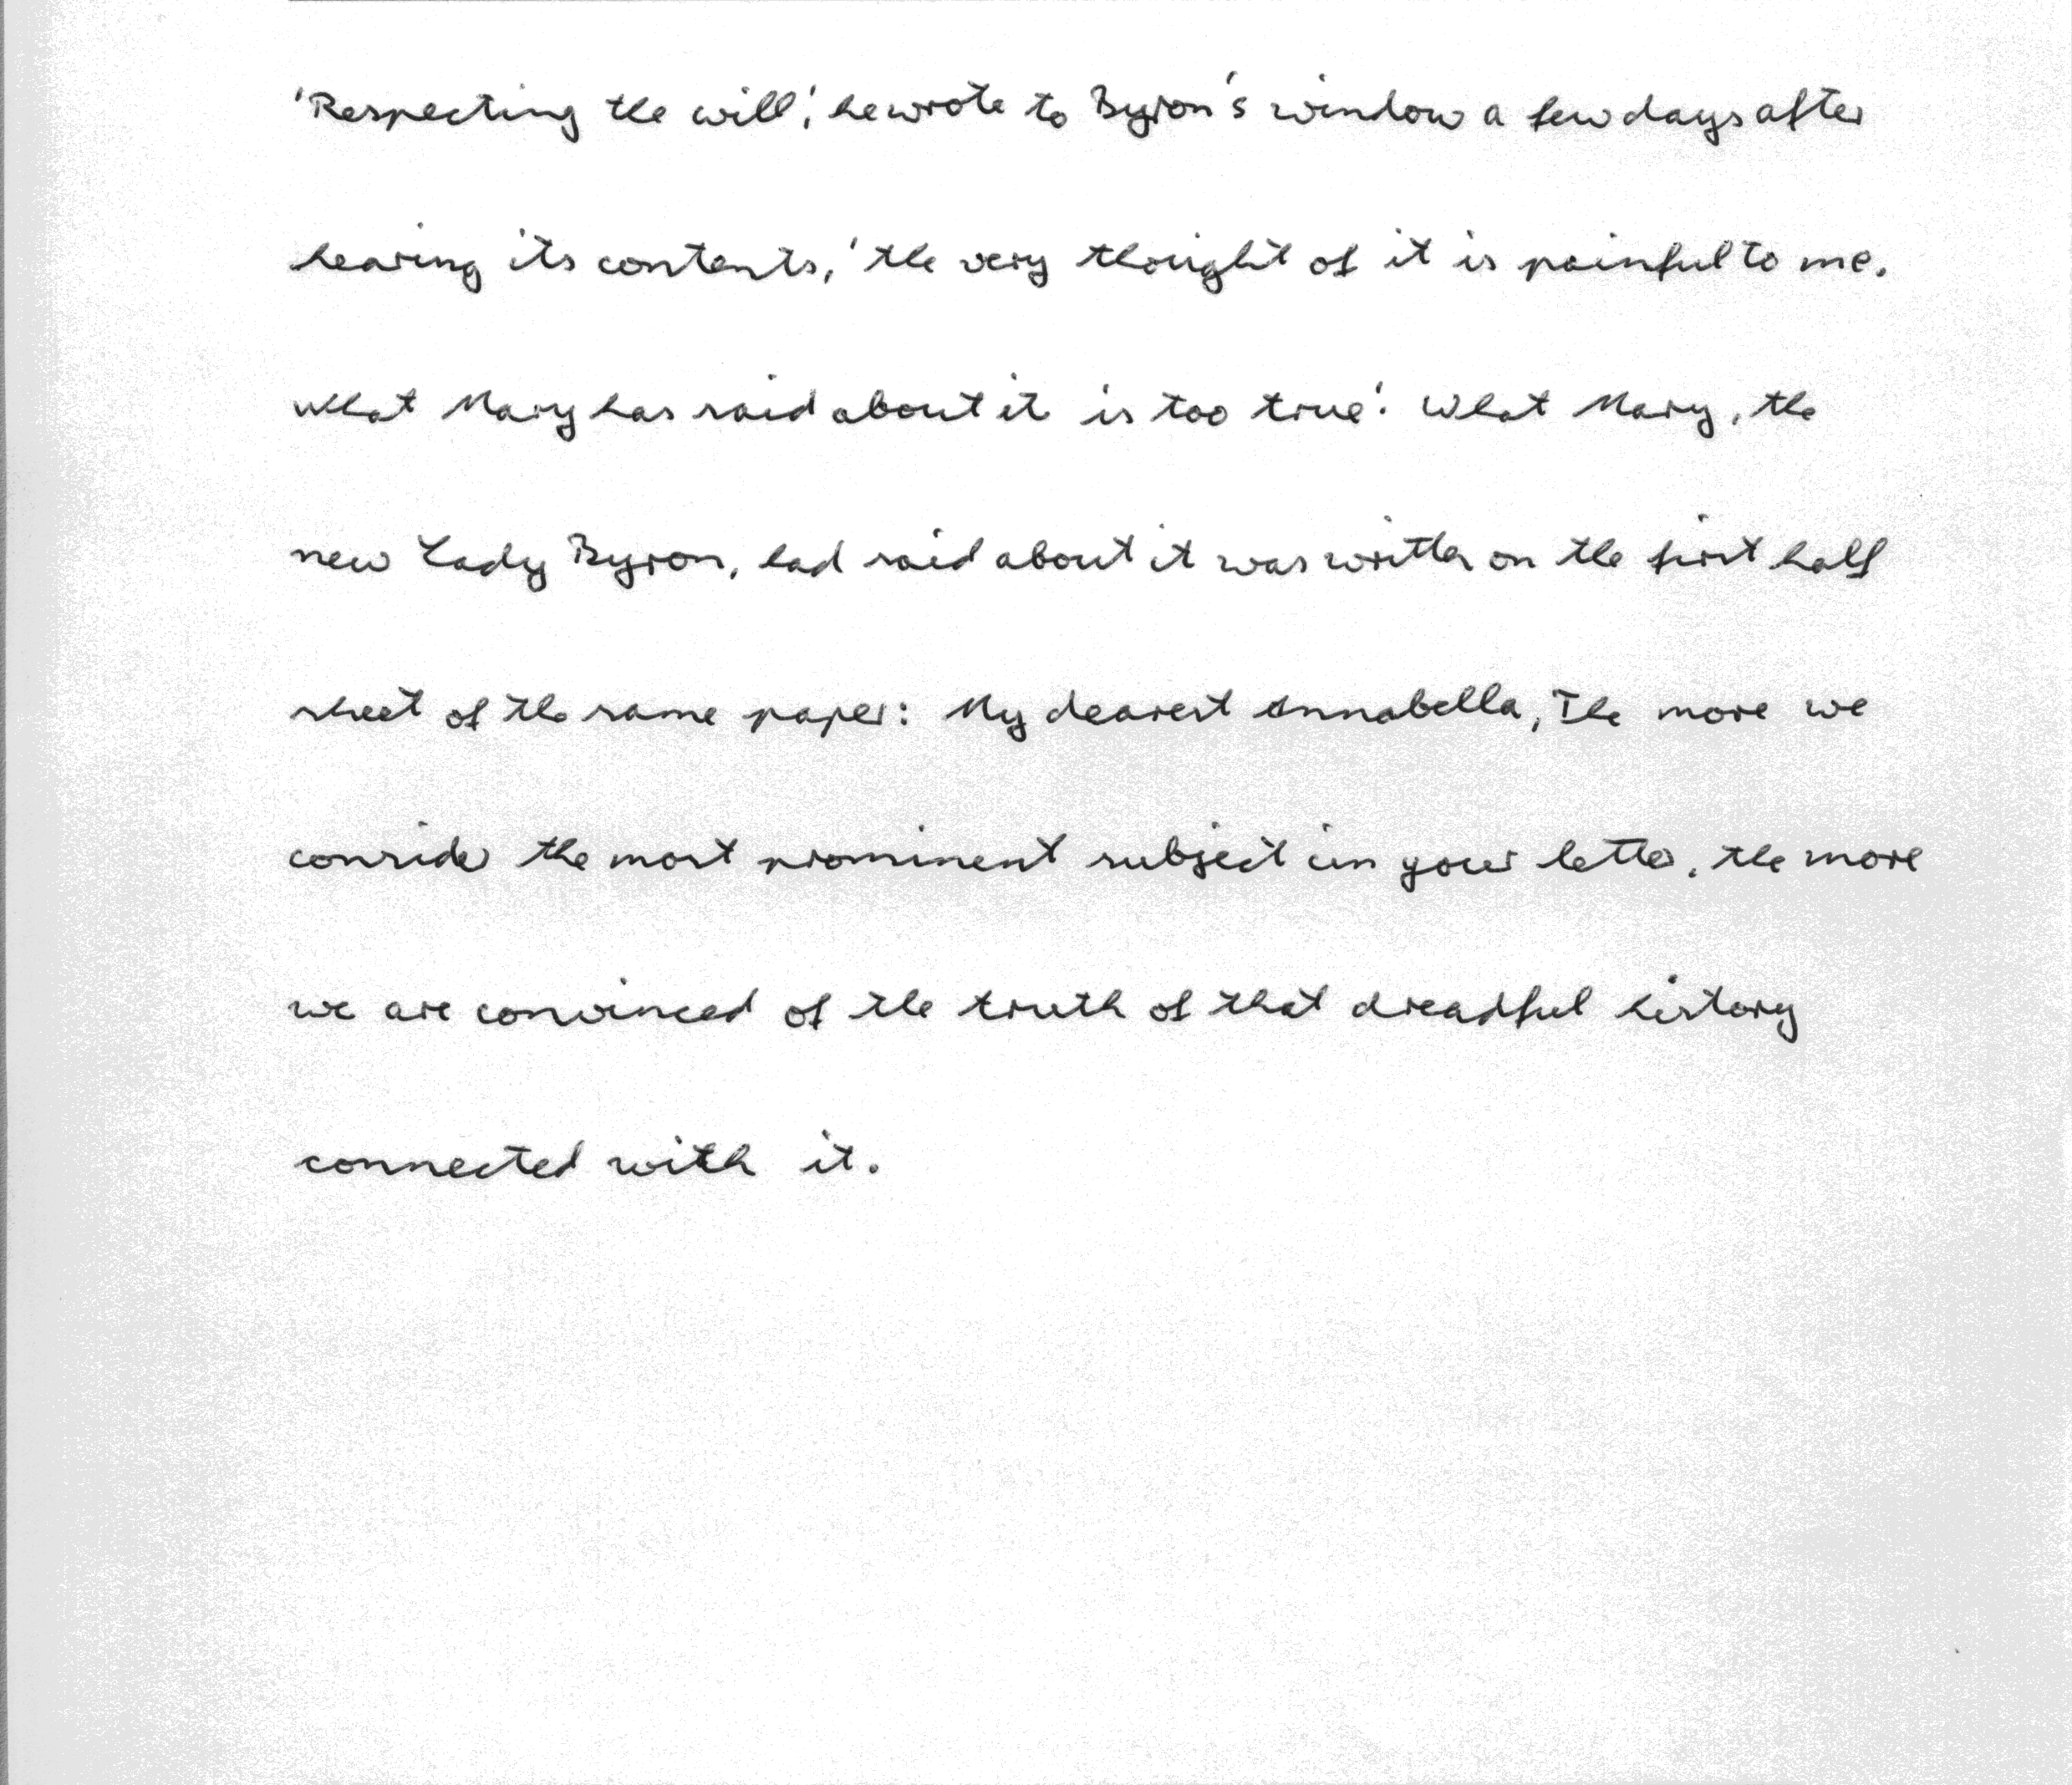 'Respecting the will,' he wrote to Byron's window a few days after
hearing its contents, 'the very thought of it is painful to me.
what Mary has said about it is too true'. What Mary, the
new Lady Byron, had said about it was written on the first half
sheet of the same paper: My dearest Annabella, The more we
consider the most prominent subject in your letter, the more
we are convinced of the truth of that dreadful history
connected with it.